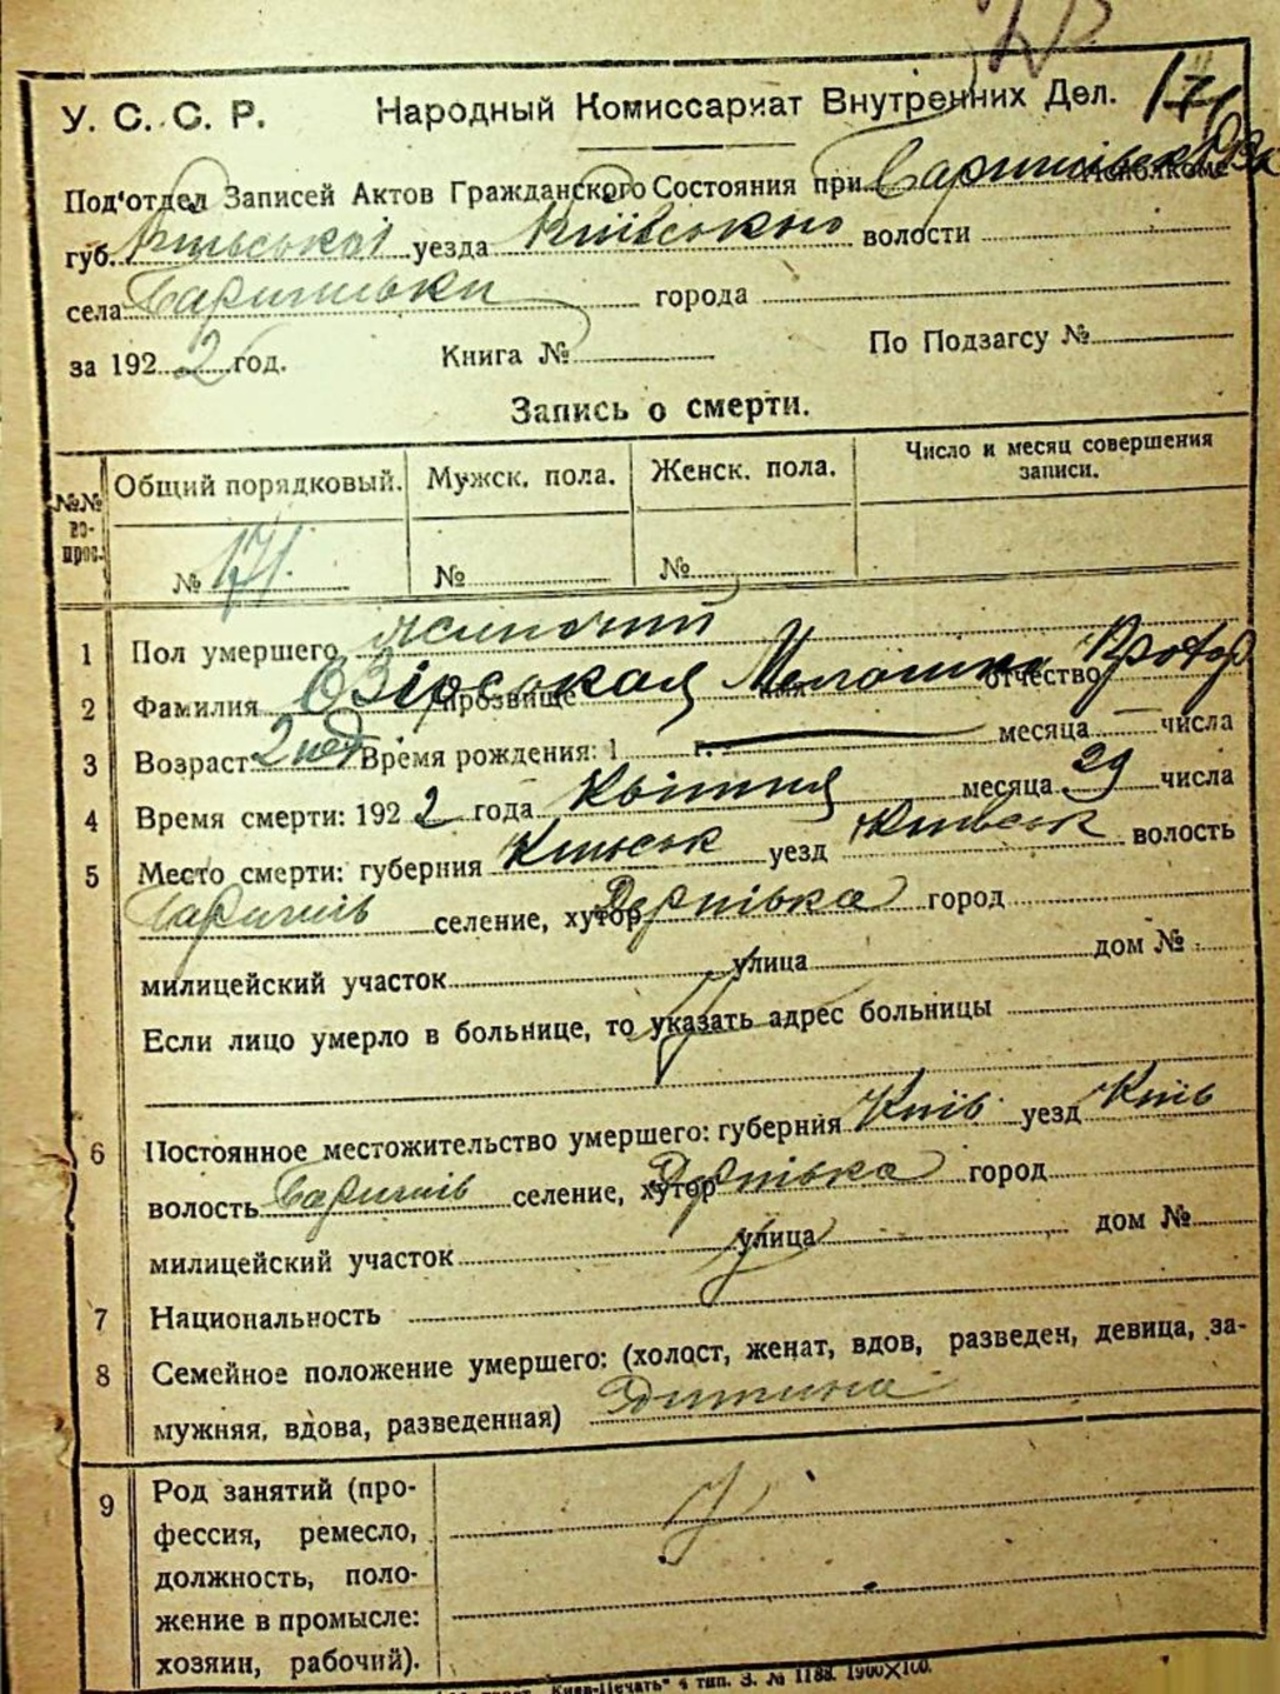 У. С. С. Р. Народный Комиссариат Внутренних Дел. 171
Под'отдел Записей Актов Гражданского Состояния при
губ. Київської уезда Київського волости
села Баришівки города
за 1922 год. Книга № По Подзагсу №
Запись о смерти.
№№ во- прос. Общий порядковый. Мужск. пола. Женск. пола. Число и месяц совершения записи.
№ 171. № №
1 Пол умершего
2 Фамилия прозвище отчество
3 Возраст 2 нед Время рождения: 1 г. месяца числа
4 Время смерти: 1922 года Квітня месяца 29 числа
5 Место смерти: губерния Київськ уезд Київськ волость
Баришів селение, хутор Дернівка город
милицейский участок улица дом №
Если лицо умерло в больнице, то указать адрес больницы
6 Постоянное местожительство умершего: губерния Київ. уезд Київ
волость Баришів селение, хутор Дернівка город
милицейский участок улица дом №
7 Национальность
8 Семейное положение умершего: (холост, женат, вдов, разведен, девица, за-
мужняя, вдова, разведенная) Дитина
9 Род занятий (про-
фессия, ремесло,
должность, поло-
жение в промысле:
хозяин, рабочий).
„Киев-Печать" 4 тип. З. № 1188. 1900×100.